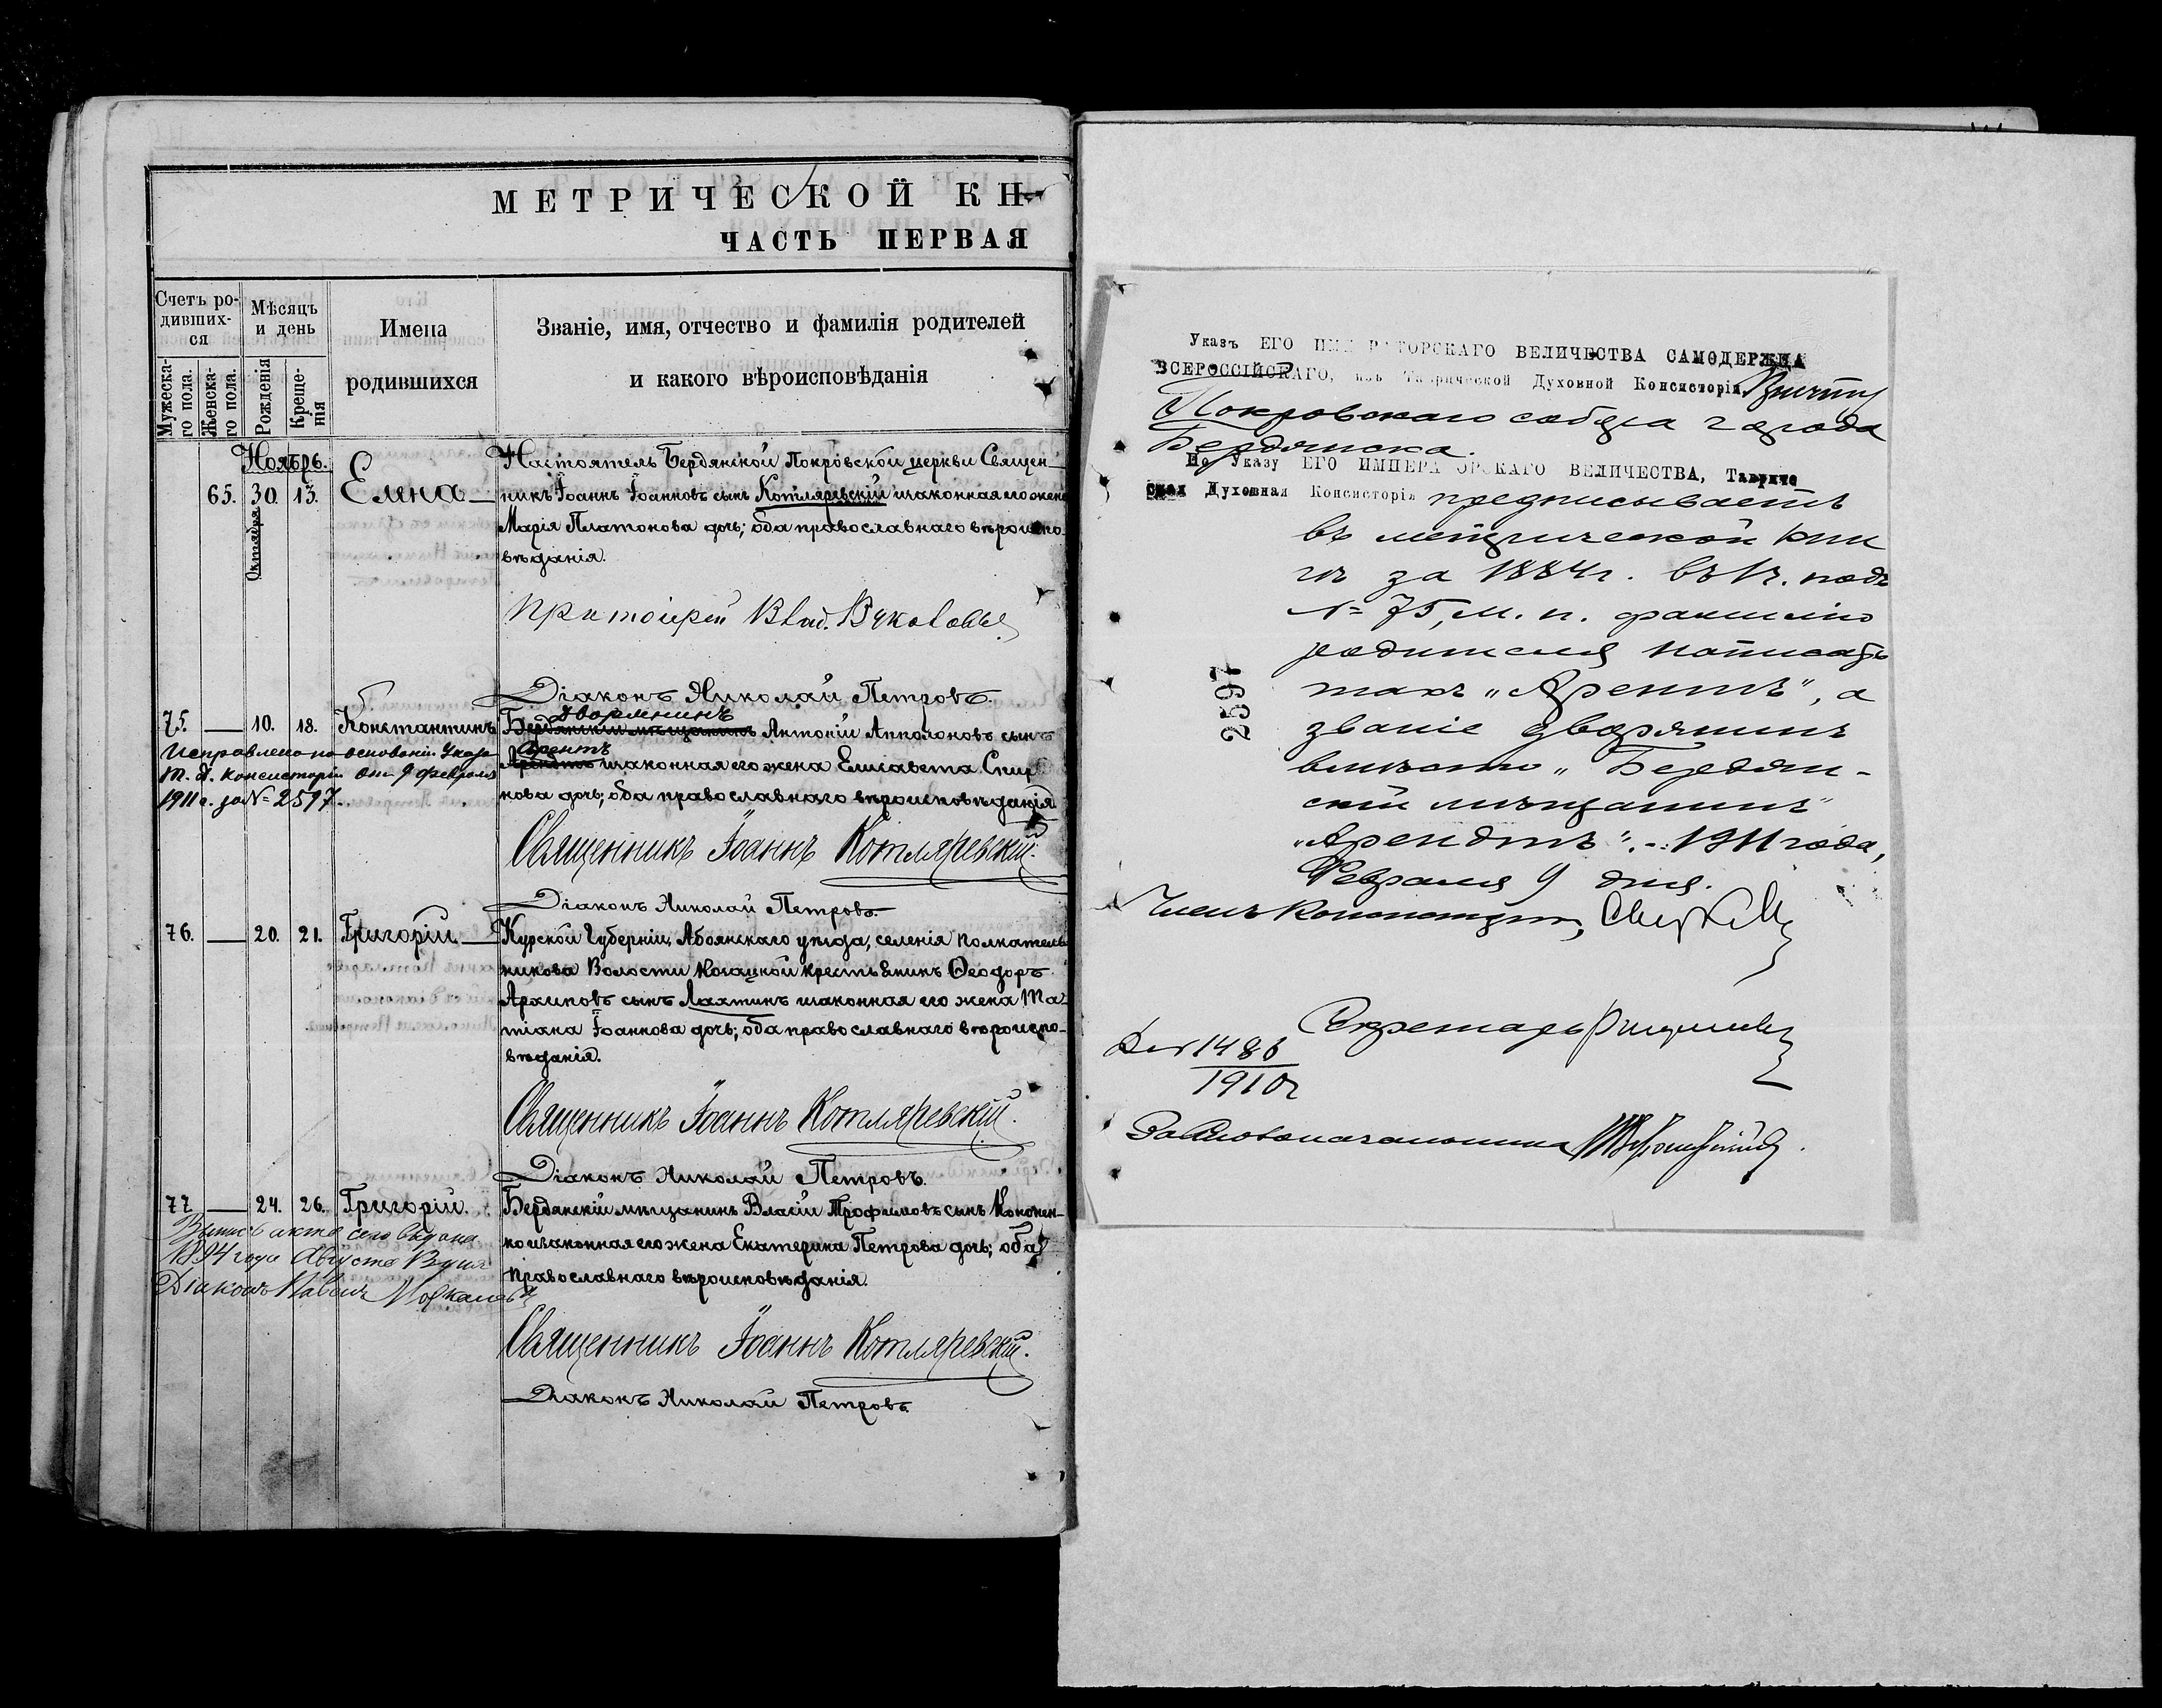 МЕТРИЧЕСКОЙ КН
ЧАСТЬ ПЕРВАЯ
Счетъ ро-
дивших-
ся
Мужеска-
го пола.
Женска-
го пола.
Мѣсяцъ
и день
Рожденія
Креще-
нія
Имена
родившихся
Званіе, имя, отчество и фамилія родителей
и какого вѣроисповѣданія
Ноябрь.
65. 30. 13. Елена
Октября
Настоятель Бердянской Покровской церкви Священ-
никъ Іоаннъ Іоанновъ сынъ Котляревскій и законная его жена
Марія Платонова дочь; оба православнаго вѣроиспо-
вѣданія.
Протоіерей Влад.
Діаконъ Николай Петровъ.
75. — 10. 18. Константинъ
Исправлено на основаніи Указа
Т. Д. Консисторіи отъ 9 февраля
1911 г. за № 2597.
дворянинъ
Бердянскій мѣщанинъ Антоній Апполоновъ сынъ
Арентъ
и законная его жена Елисавета
нова дочь; оба православнаго вѣроисповѣданія
Священникъ Іоаннъ Котляревскій.
Діаконъ Николай Петровъ.
76. — 20. 21. Григорій —
Курской Губерніи, Абоянскаго уѣзда, селенія
никова Волости Казацкой крестьянинъ Ѳеодоръ
Архиповъ сынъ Лахтинъ и законная его жена Та-
тіана Іоаннова дочь; оба православнаго вѣроиспо-
вѣданія.
Священникъ Іоаннъ Котляревскій.
Діаконъ Николай Петровъ.
77. — 24. 26. Григорій.
Выпись акта сего выдана
1894 года Августа
Діаконъ Павелъ
Бердянскій мѣщанинъ Власій Трофимовъ сынъ Кононен-
ко и законная его жена Екатерина Петрова дочь; оба
православнаго вѣроисповѣданія.
Священникъ Іоаннъ Котляревскій.
Діаконъ Николай Петровъ.
Указъ ЕГО ИМПЕРАТОРСКАГО ВЕЛИЧЕСТВА САМОДЕРЖЦА
ВСЕРОССІЙСКАГО, изъ Таврической Духовной Консисторіи Причту
Покровскаго собора города
Бердянска.
По Указу ЕГО ИМПЕРАТОРСКАГО ВЕЛИЧЕСТВА, Тавриче
ская Духовная Консисторія предписываетъ
въ метрической кни
гѣ за 1884 г. въ 1 ч. подъ
№ 75, м. п. фамилію
родителя написать
такъ „Арентъ", а
званіе дворянинъ
вмѣсто „Бердян-
скій мѣщанинъ"
„Арендтъ". – 1911 года,
Февраля 9 дня.
2597
Членъ Консисторіи,
Секретарь
1486
1910 г
За Столоначальника